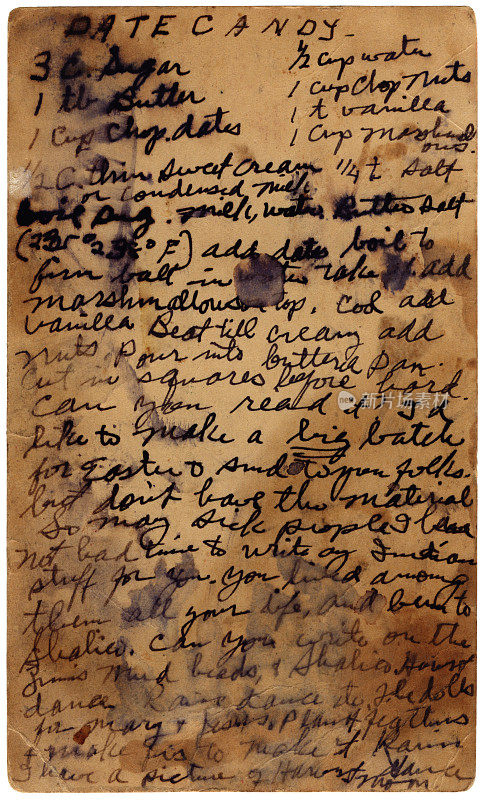 DATE CANDY
3 C. Sugar
1 tb Butter
1 cup chop. dates
½ cup water
1 cup chop nuts
1 t vanilla
1 cup marshmallows.
½ C. Sweet cream ¼ t salt
or condensed milk
boil sug. milk, water Butter salt
(235° F) add dates boil to
firm ball in add
marshmallows cool add
vanilla Beat till creamy add
nuts. Pour into butterd pan.
Cut in squares before hard.
Can you read this
like to make a big batch
for Easter & send to you folks.
but don't have the material
So many sick people I have
not had time to write any Indian
stuff for you. You lived among
them all your life, and been to
Shalico. Can you write on the
mud heads, & Shalico,
dance Rain dance
for many plant feathers
& make
I have a picture of dance
新image